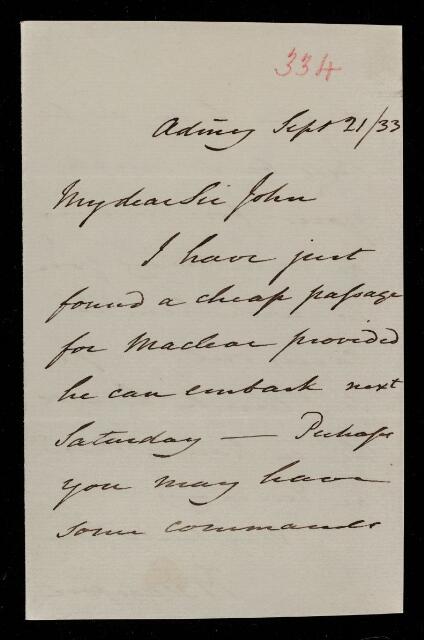 334
Admty Sept 21/33
My dear Sir John
I have just
found a cheap passage
for Maclear provided
he can embark next
Saturday — Perhaps
you may have
some commands